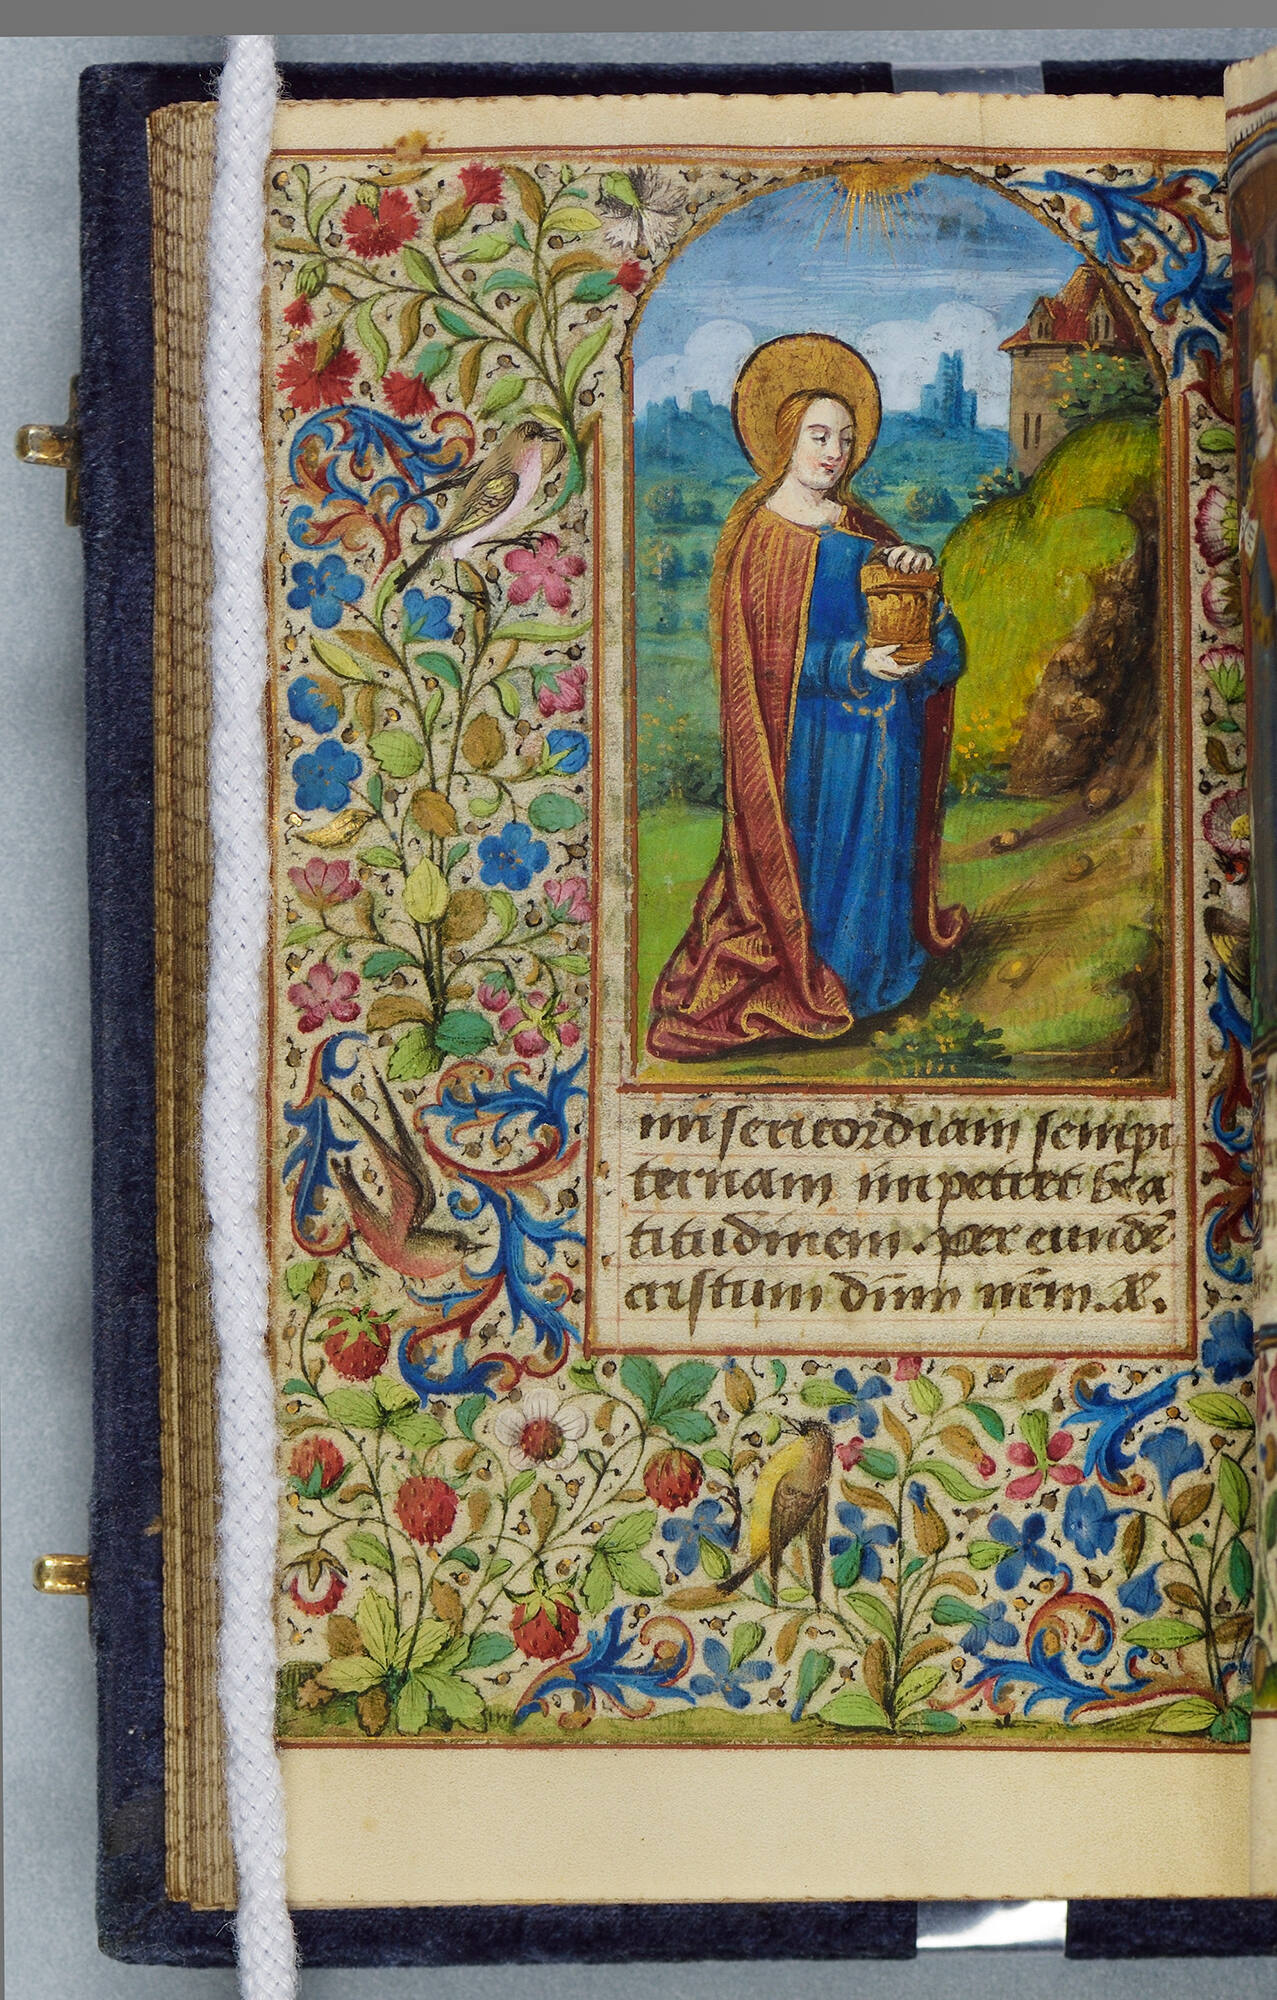 misericordiam sempi
ternam impetret bea
titudinem. per eundē
cristum dn̄m nr̄m. Æ.